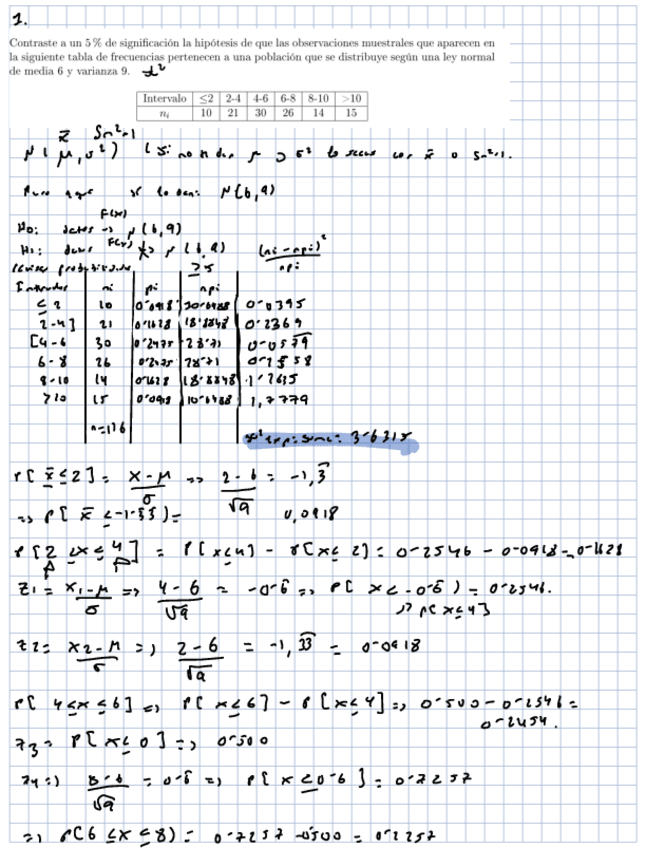 1.
Contraste a un 5 % de significación la hipótesis de que las observaciones muestrales que aparecen en
la siguiente tabla de frecuencias pertenecen a una población que se distribuye según una ley normal
de media 6 y varianza 9.
Intervalo ≤2 2-4 4-6 6-8 8-10 >10
n_i 10 21 30 26 14 15
x̄ Sn²-1
N(μ, σ²) (si no n dan μ o σ² lo sacas con x̄ o Sn²-1.
Pero aque se lo dan: N(6,9)
F(x)
H0: datos → N(6,9)
H1: datos F(x) N(6,9) (ni-npi)²/npi
≥5
ni pi npi
≤2 10 0'0918 10'6488 0'0395
2-4] 21 0'1628 18'8848 0'2369
[4-6 30 28'71 0'0579
6-8 26 28'71
8-10 14 0'1628 18'8848 1'2635
>10 15 0'0918 10'6488 1,7779
n=116
3'6315
P[x̄≤2] = x-μ/σ => 2-6/√9 = -1,3
=> P[x̄ ≤-1.33) = 0,0918
P[2 <x≤4] = P[x≤4] - P[x≤2] = 0'2546 - 0'0918 = 0'1628
Z1 = x1-μ/σ => 4-6/√9 = -0'6 => P[x<-0'6) = 0'2546.
P[x≤4]
Z2 = x2-μ/σ => 2-6/√9 = -1,33 = 0'0918
P[4≤x≤6] => P[x≤6] - P[x≤4] => 0'500 - 0'2546 =
0'2454.
Z3 = P[x≤0] => 0'500
Z4 => 8-6/√9 = 0'6 => P[x≤0'6] = 0'7257
=> P(6≤x≤8) = 0'7257 - 0'500 = 0'2257